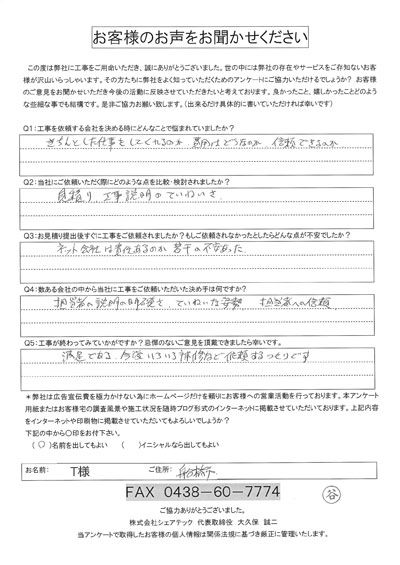 お客様のお声をお聞かせください
この度は弊社に工事をご用命いただき、誠にありがとうございました。世の中には弊社の存在やサービスをご存知ないお客
様が沢山いらっしゃいます。その方たちに弊社をよく知っていただくためのアンケートにご協力いただけるでしょうか？ お客様
のご意見をお聞かせいただき今後の活動に反映させていきたいと考えております。良かったこと、嬉しかったことどのよう
な些細な事でも結構です。是非ご協力お願い致します。（出来るだけ具体的に書いていただければ幸いです）
Q1：工事を依頼する会社を決める時にどんなことで悩まれていましたか？
きちんとした仕事をしてくれるのか、費用はどうなのか、信頼できるのか
Q2：当社にご依頼いただく際にどのような点を比較・検討されましたか？
見積り、工事説明のていねいさ
Q3：お見積り提出後すぐに工事ご依頼されましたか？もしご依頼されなかったとしたらどんな点が不安でしたか？
ネット会社は責任あるのか 若干の不安あった
Q4：数ある会社の中から当社に工事をご依頼いただいた決め手は何ですか？
担当者の説明の明確さ、ていねいな姿勢 担当者への信頼
Q5：工事が終わってみていかがですか？忌憚のないご意見を頂戴できましたら幸いです。
満足である、今後いろいろ補修など依頼するつもりです
＊弊社は広告宣伝費を極力かけない為にホームページだけを頼りにお客様への営業活動を行っております。本アンケート
用紙またはお客様宅の調査風景や施工状況を随時ブログ形式のインターネットに掲載させていただいております。上記内容
をインターネットや印刷物に掲載させていただいてもよろしいでしょうか？
下記の中から〇印をお付下さい。
（○）名前を出してもよい （ ）イニシャルなら出してもよい
お名前： T様 ご住所： 船橋市
FAX 0438－60－7774 谷
ご協力ありがとうございました。
株式会社シェアテック 代表取締役 大久保 誠二
当アンケートで取得したお客様の個人情報は関係法規に基づき厳正に管理いたします。